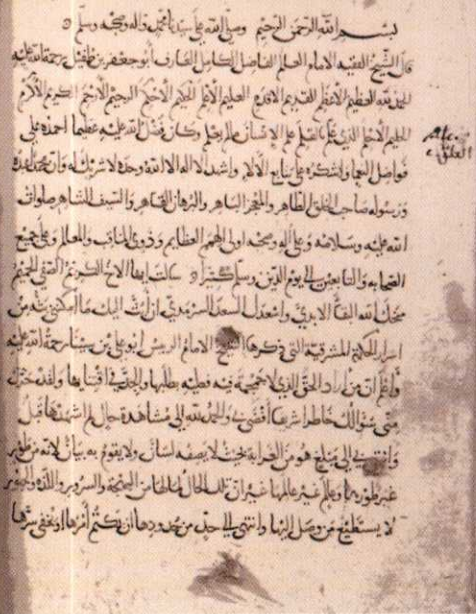 بسم الله الرحمن الرحيم وصلى الله على سيدنا محمد وآله وصحبه وسلم
قال الشيخ الفقيه الامام العالم الفاضل الكامل العارف أبو جعفر بن طفيل رحمة الله عليه
الحمد لله العظيم الأعظم القديم الاقدم العليم الأعلم الحكيم الأحكم الرحيم الأرحم الكريم الأكرم
الحليم الاحلم الذي علم بالقلم علم الإنسان ما لم يعلم وكان فضل الله عليه عظيما احمده على
فواضل النعما واشكره على تتابع الآلا واشهد ان لا اله الا الله وحده لا شريك له وان محمدا عبده
ورسوله صاحب الخلق الطاهر والمعجز الباهر والبرهان القاهر والسيف الشاهر صلوات
الله عليه وسلامه وعلى آله وصحبه اولي الهمم العظايم وذوي المناقب والمعالم وعلى جميع
الصحابه والتابعين الى يوم الدين وسلم كثيرا سالت ايها الاخ الكريم الصفي الحميم
منحك الله البقا الابدي واسعدك السعد السرمدي ان ابث اليك ما امكنني بثه من
اسرار الحكمة المشرقية التي ذكرها الشيخ الامام الرييس ابو علي بن سينا رحمة الله عليه
واعلم ان من اراد الحق الذي لا جمجمة فيه فعليه بطلبها والجد في اقتنايها ولقد حرك
مني سؤالك خاطرا شريفا أفضى بي والحمد لله الى مشاهدة حال لم اشهدها قبل
وانتهى بي الى مبلغ هو من الغرابة بحيث لا يصفه لسان ولا يقوم به بيان لانه من طور
غير طورهما وعالم غير عالمهما غير ان تلك الحال لما لها من البهجة والسرور واللذة والحبور
لا يستطيع من وصل اليها وانتهى الى حد من حدودها ان يكتم امرها او يخفي سرها